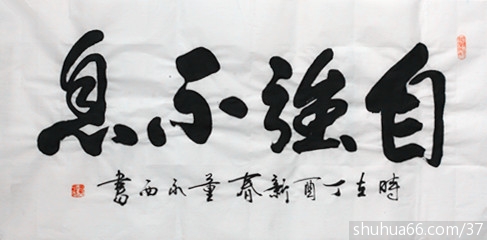 自强不息
時在丁酉新春董永西書
shuhua66.com/37